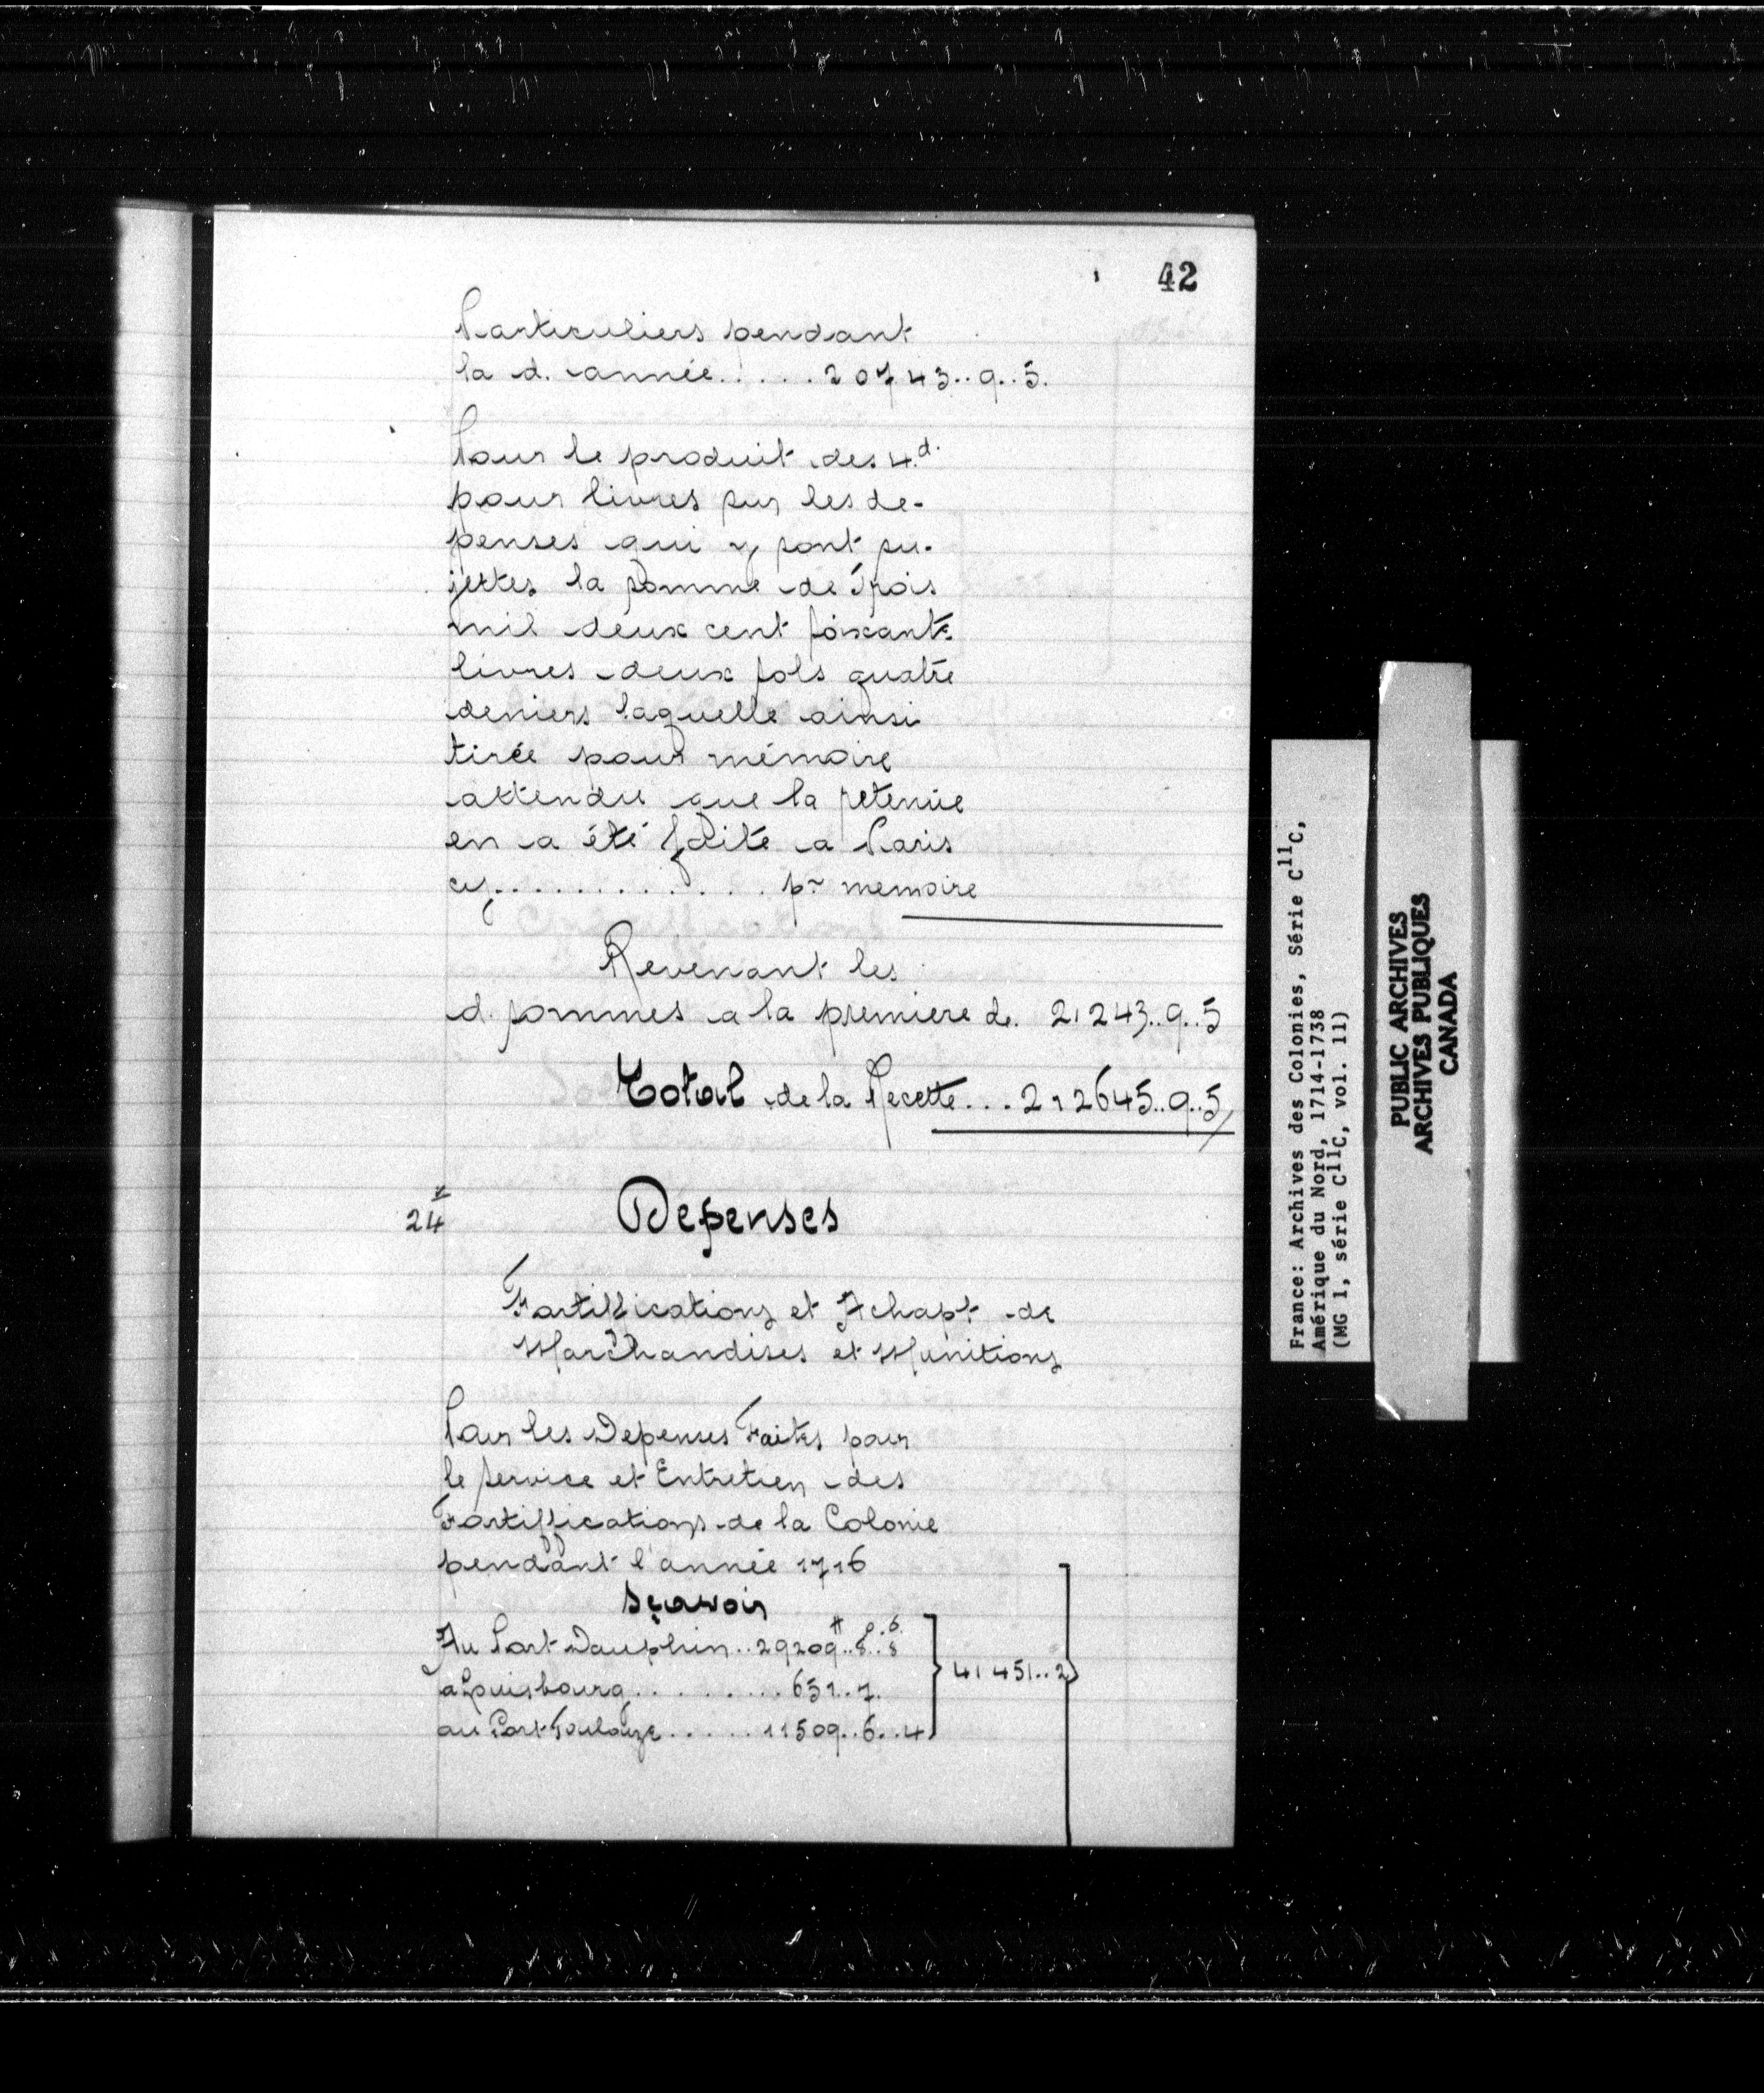 42
Particuliers pendant
la d. année..... 20743..9..5.
Pour le produit des 4.d.
pour livres sur les de-
penses qui y sont su-
jettes la somme de Trois
mil deux cent soixante
livres deux sols quatre
deniers laquelle ainsi
tirée pour mémoire
attendu que la retenüe
en a été faite a Paris
cy............. pr memoire
Revenant les
d. sommes a la premiere de 21243..9..5
Total de la Recette... 212645..9..5
24
Depenses
Fortiffications et Achapt de
Marchandises et Munitions
Pour les Depenses Faites pour
le service et Entretien des
Fortiffications de la Colonie
pendant l'année 1716
Sçavoir
Au Port Dauphin..29209#..8s..8d
a Louisbourg.........651..7.
au Port Toulouze.....11509..6..4
41451..2
France: Archives des Colonies, Série C11C,
Amérique du Nord, 1714-1738
(MG 1, série C11C, vol. 11)
PUBLIC ARCHIVES
ARCHIVES PUBLIQUES
CANADA